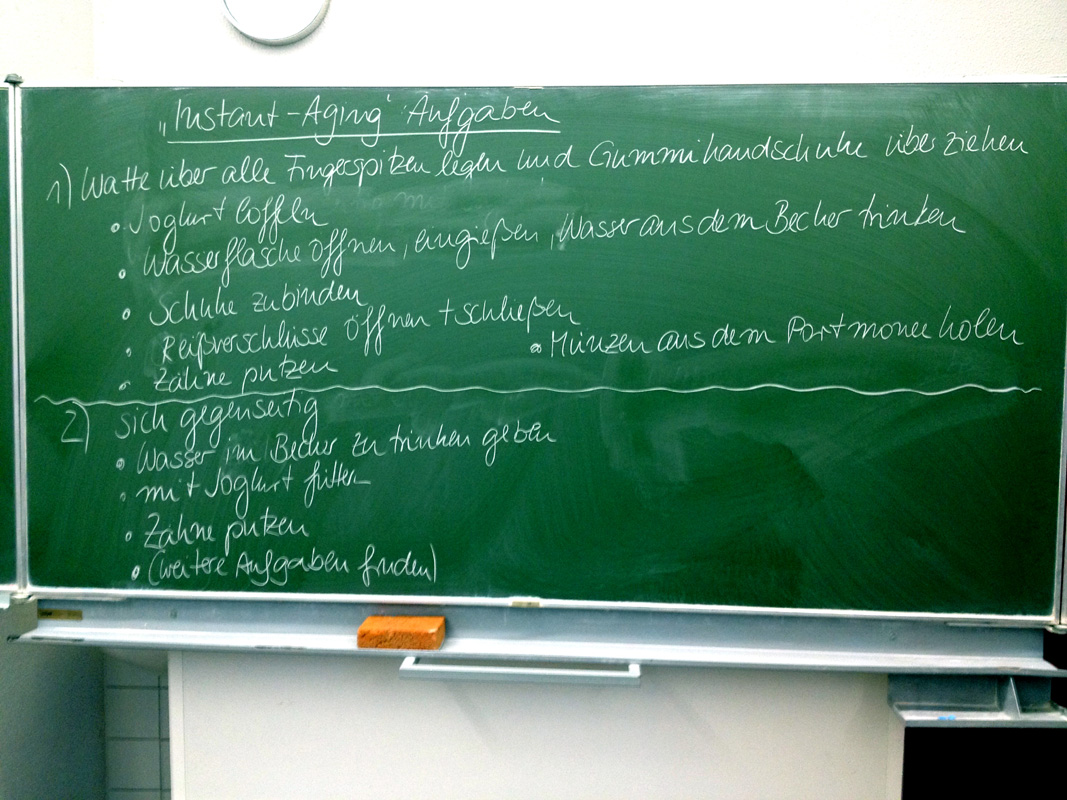 „Instant-Aging" Aufgaben
1) Watte über alle Fingerspitzen legen und Gummihandschuhe überziehen
• Joghurt löffeln
• Wasserflasche öffnen, eingießen, Wasser aus dem Becher trinken
• Schuhe zubinden
• Reißverschlüsse öffnen + schließen
• Münzen aus dem Portmonee holen
• Zähne putzen
2) sich gegenseitig
• Wasser im Becher zu trinken geben
• mit Joghurt füttern
• Zähne putzen
• (weitere Aufgaben finden)